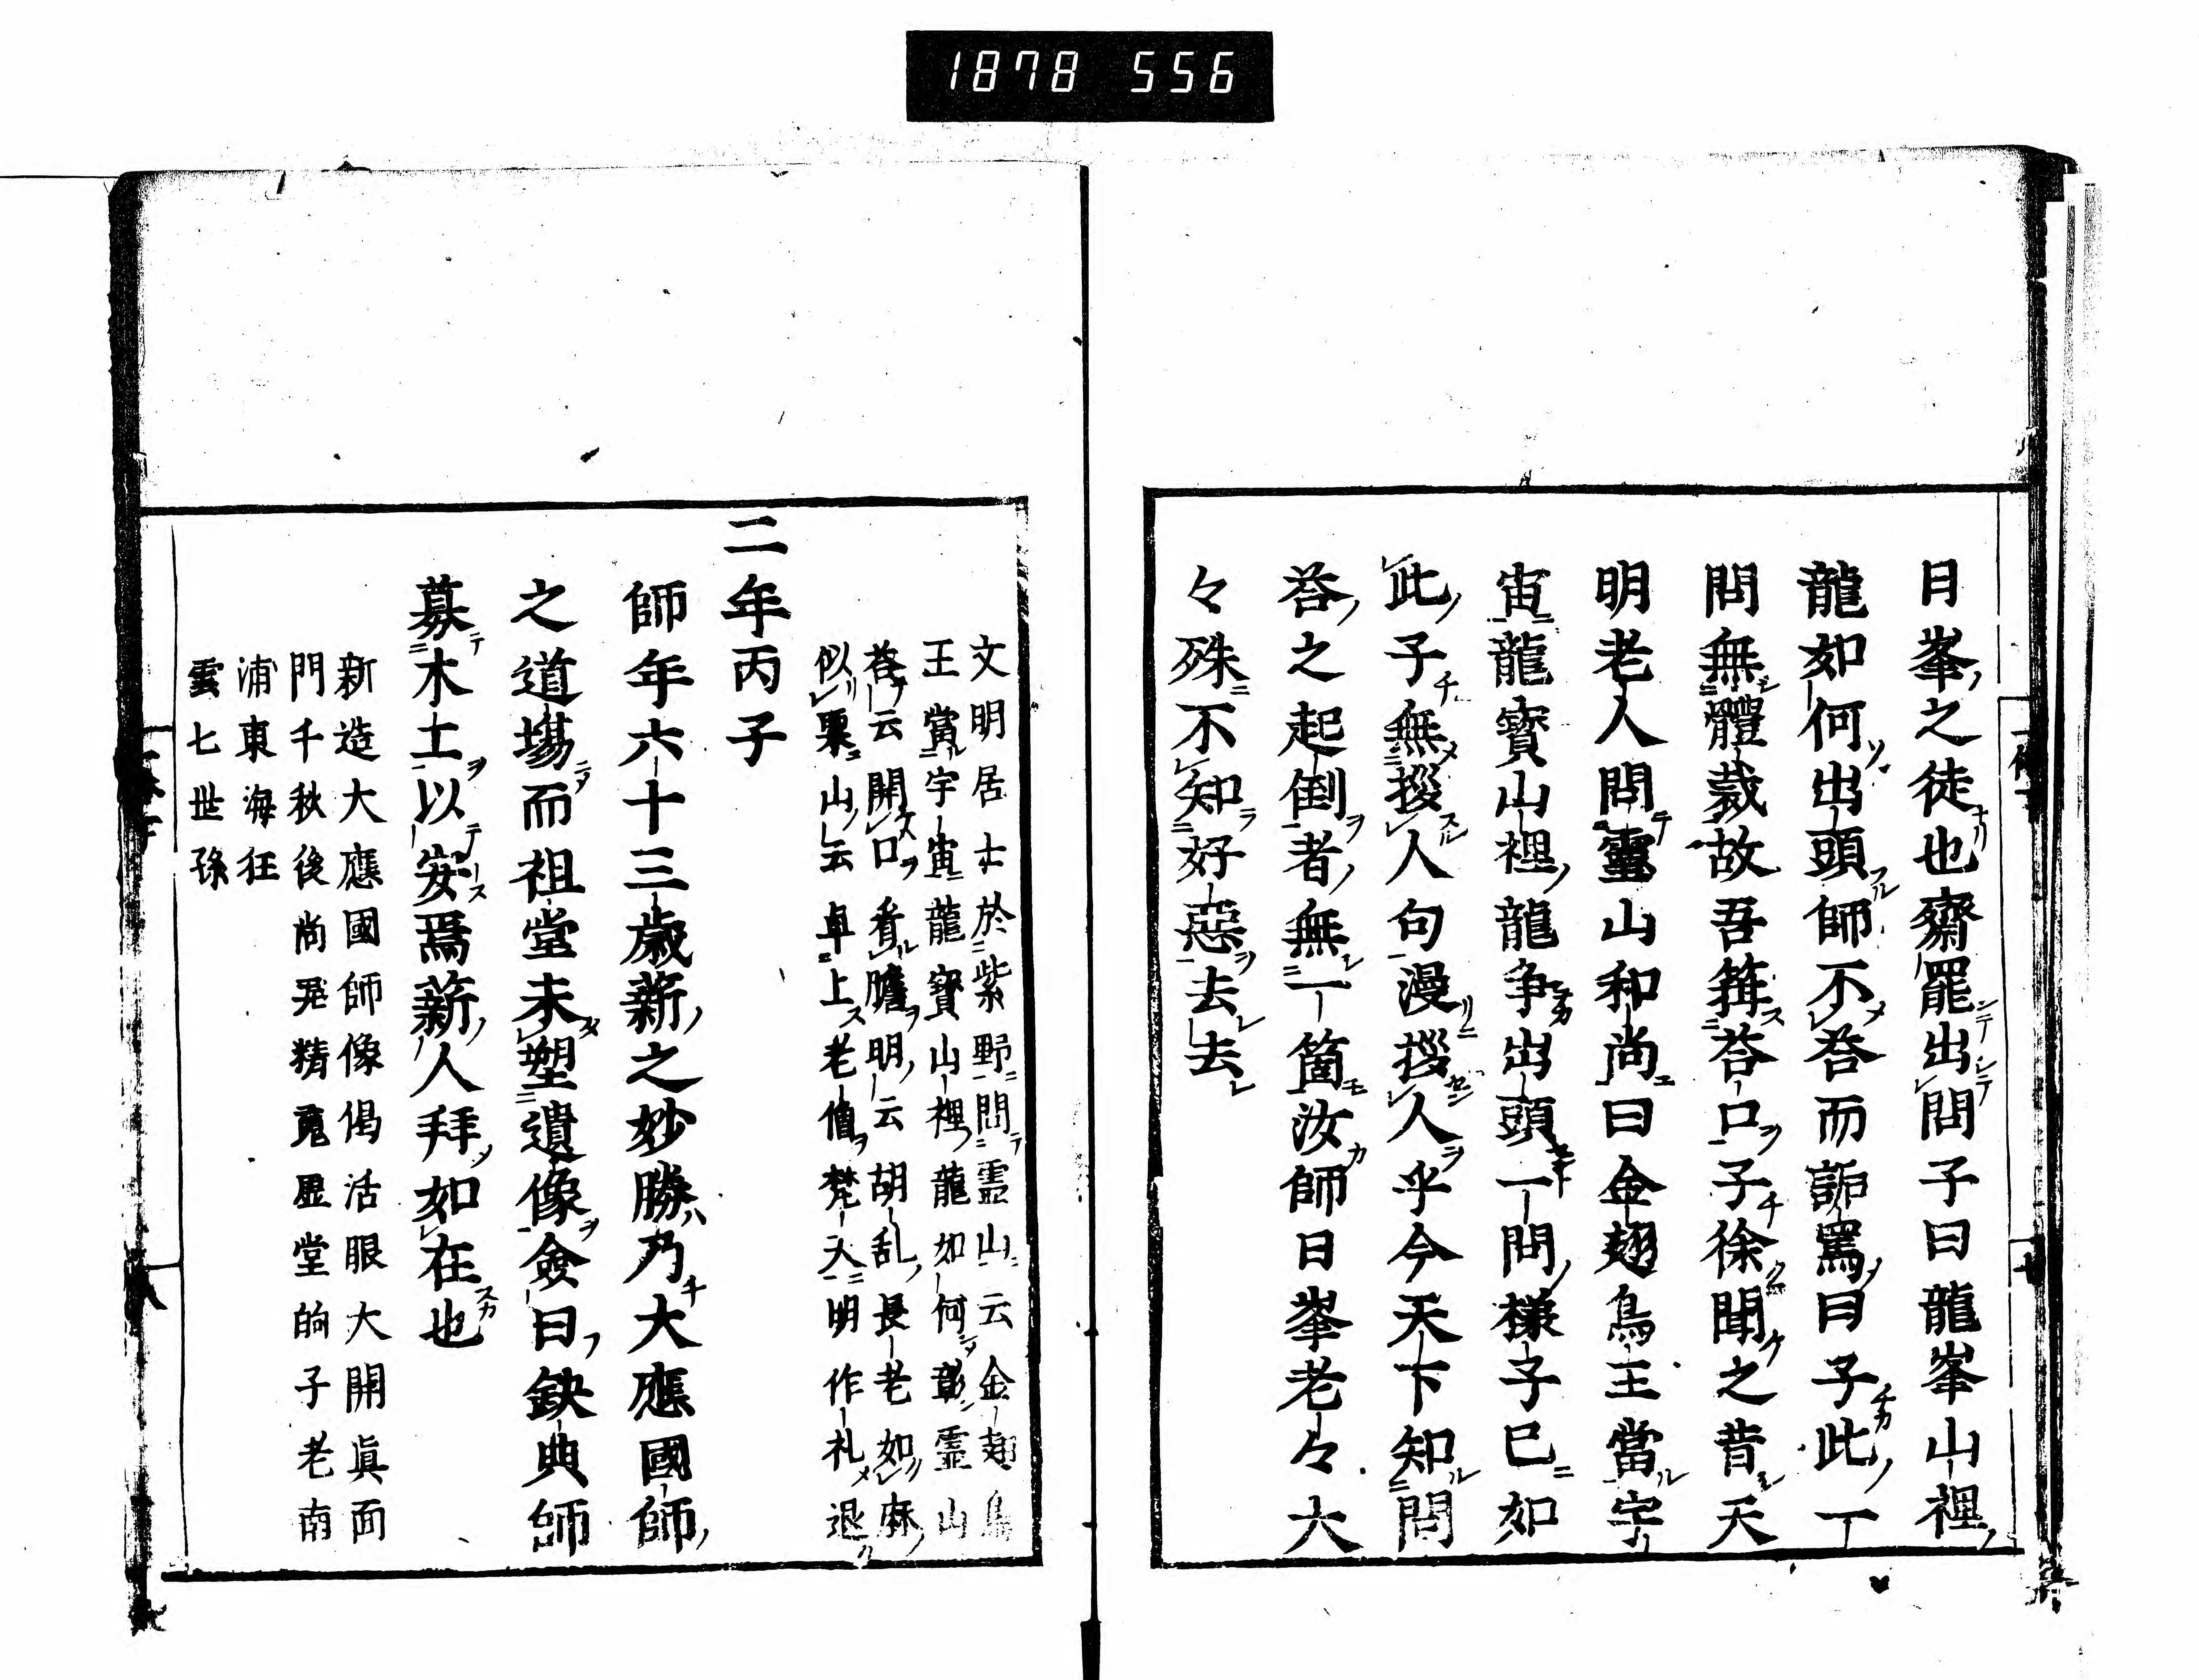 1878 556
日峯之徒也齋罷出問子曰龍峯山裡
龍如何出頭師不荅而詬罵曰子此一
問無體裁故吾箝荅口子徐聞之昔天
明老人問靈山和尚曰金翅鳥王當宇
宙龍寳山裡龍争出頭一問様子已如
此子無拶人句漫拶人乎今天下知問
荅之起倒者無一箇汝師日峯老々大
々殊不知好惡去去
文明居士於紫野問霊山云金翅鳥
王當宇宙龍寳山裡龍如何彰霊山
荅云開口看膽明云胡乱長老如麻
似粟山云卓上老僧梵天明作礼退
二年丙子
師年六十三歳薪之妙勝乃大應國師
之道場而祖堂未塑遺像僉曰缺典師
募木土以安焉薪人拜如在也
新造大應國師像偈活眼大開眞面
門千秋後尚弄精魂虚堂的子老南
浦東海狂
雲七世孫